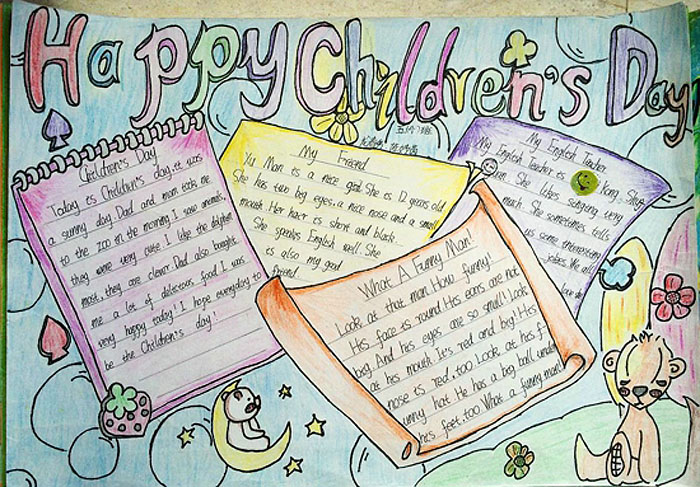 Happy Children's Day
Children's Day
Today is Children's day. it was
a sunny day. Dad and mom took me
to the zoo in the morning. I saw animals
they were very cute. I like the dolphin
most, they are clever. Dad also bought
me a lot of delicious food. I was
very happy today! I hope everyday to
be the Children's day!
My Friend
Yu Man is a nice girl. She is 12 years old
She has two big eyes, a nice nose and a small
mouth. Her hair is short and black.
She speaks English well. She
is also my good
friend.
My English Teacher
My English Teacher is Kong. She
She likes singing very
much. She sometimes tells
us some interesting
jokes. We all
love
What A Funny Man!
Look at that man. How funny.
His face is round. His ears are not
big. And his eyes are so small! look
at his mouth. It's red and big! His
nose is red, too. Look at his f
unny hat. He has a big ball under
his feet, too. What a funny man!